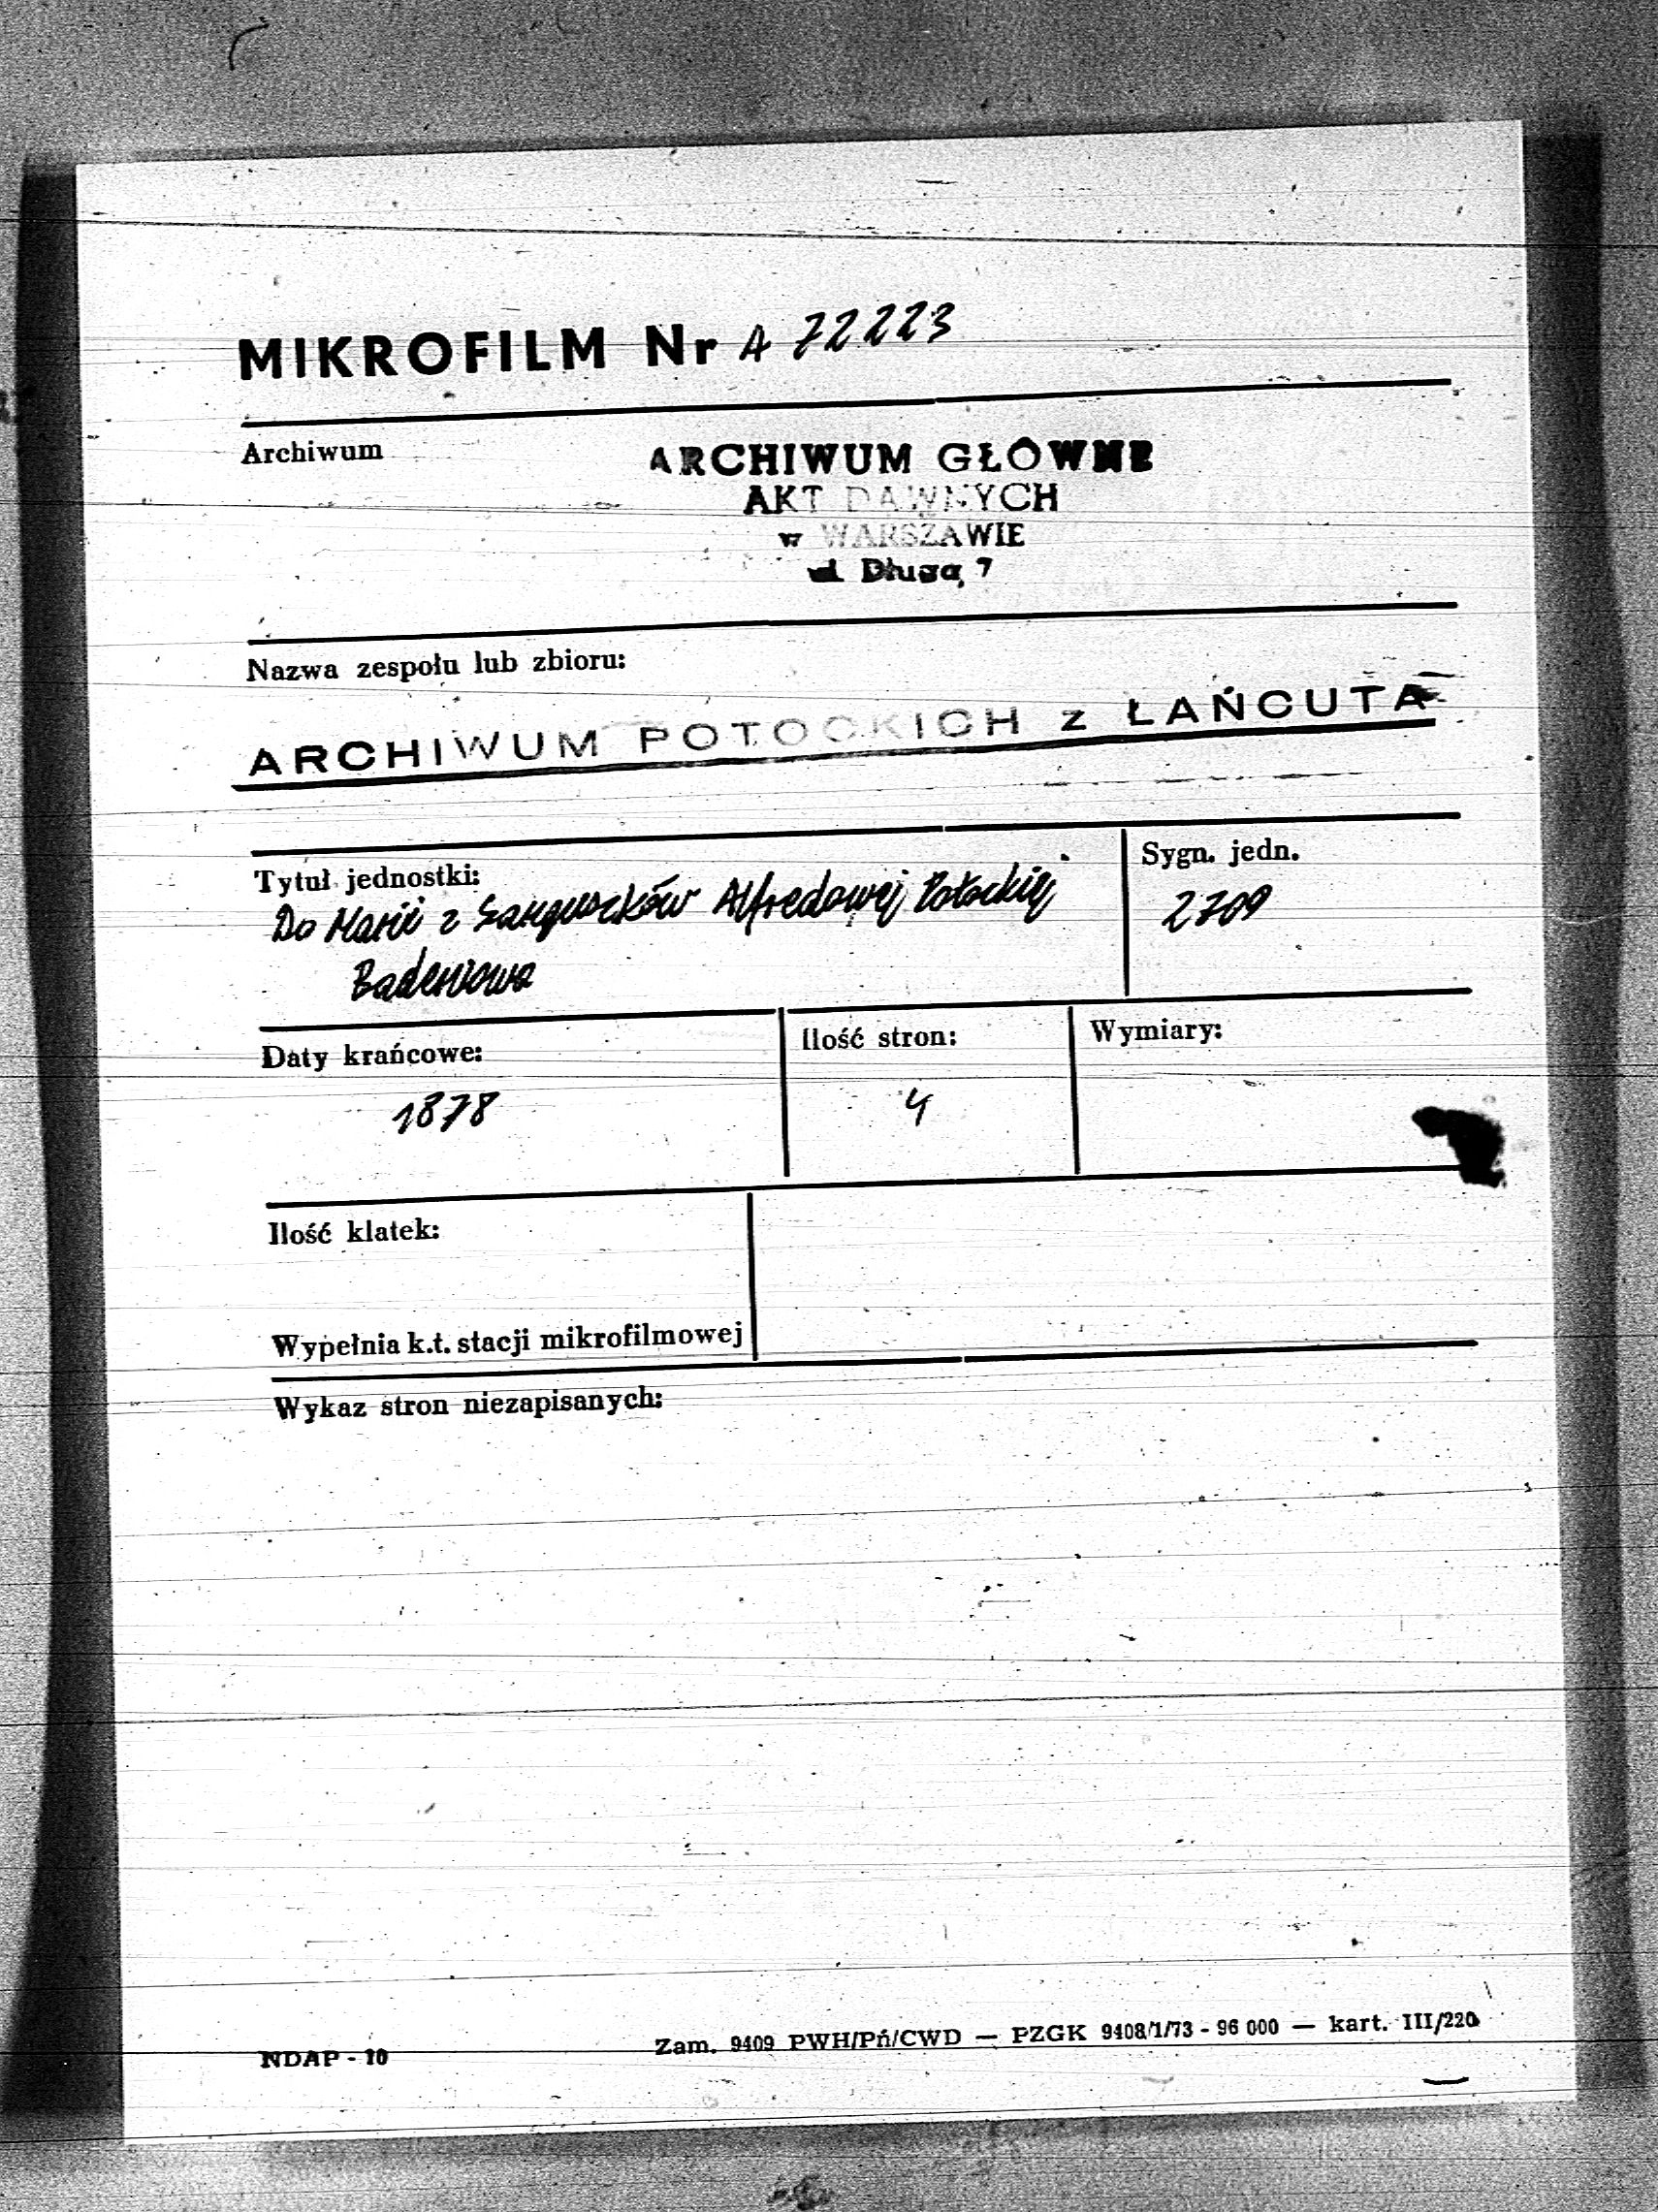 MIKROFILM Nr A 72223
Archiwum
ARCHIWUM GŁÓWNE
AKT DAWNYCH
w WARSZAWIE
ul. Długa 7
Nazwa zespołu lub zbioru:
ARCHIWUM POTOCKICH z ŁAŃCUTA
Tytuł jednostki:
Sygn. jedn.
Do Marii z Sanguszków Alfredowej Potockiej
2709
Badeniowa
Daty krańcowe:
Ilość stron:
Wymiary:
1878
4
Ilość klatek:
Wypełnia k.t. stacji mikrofilmowej
Wykaz stron niezapisanych:
NDAP - 10
Zam. 9409 PWH/Pń/CWD — PZGK 9408/1/73 - 96 000 — kart. III/220